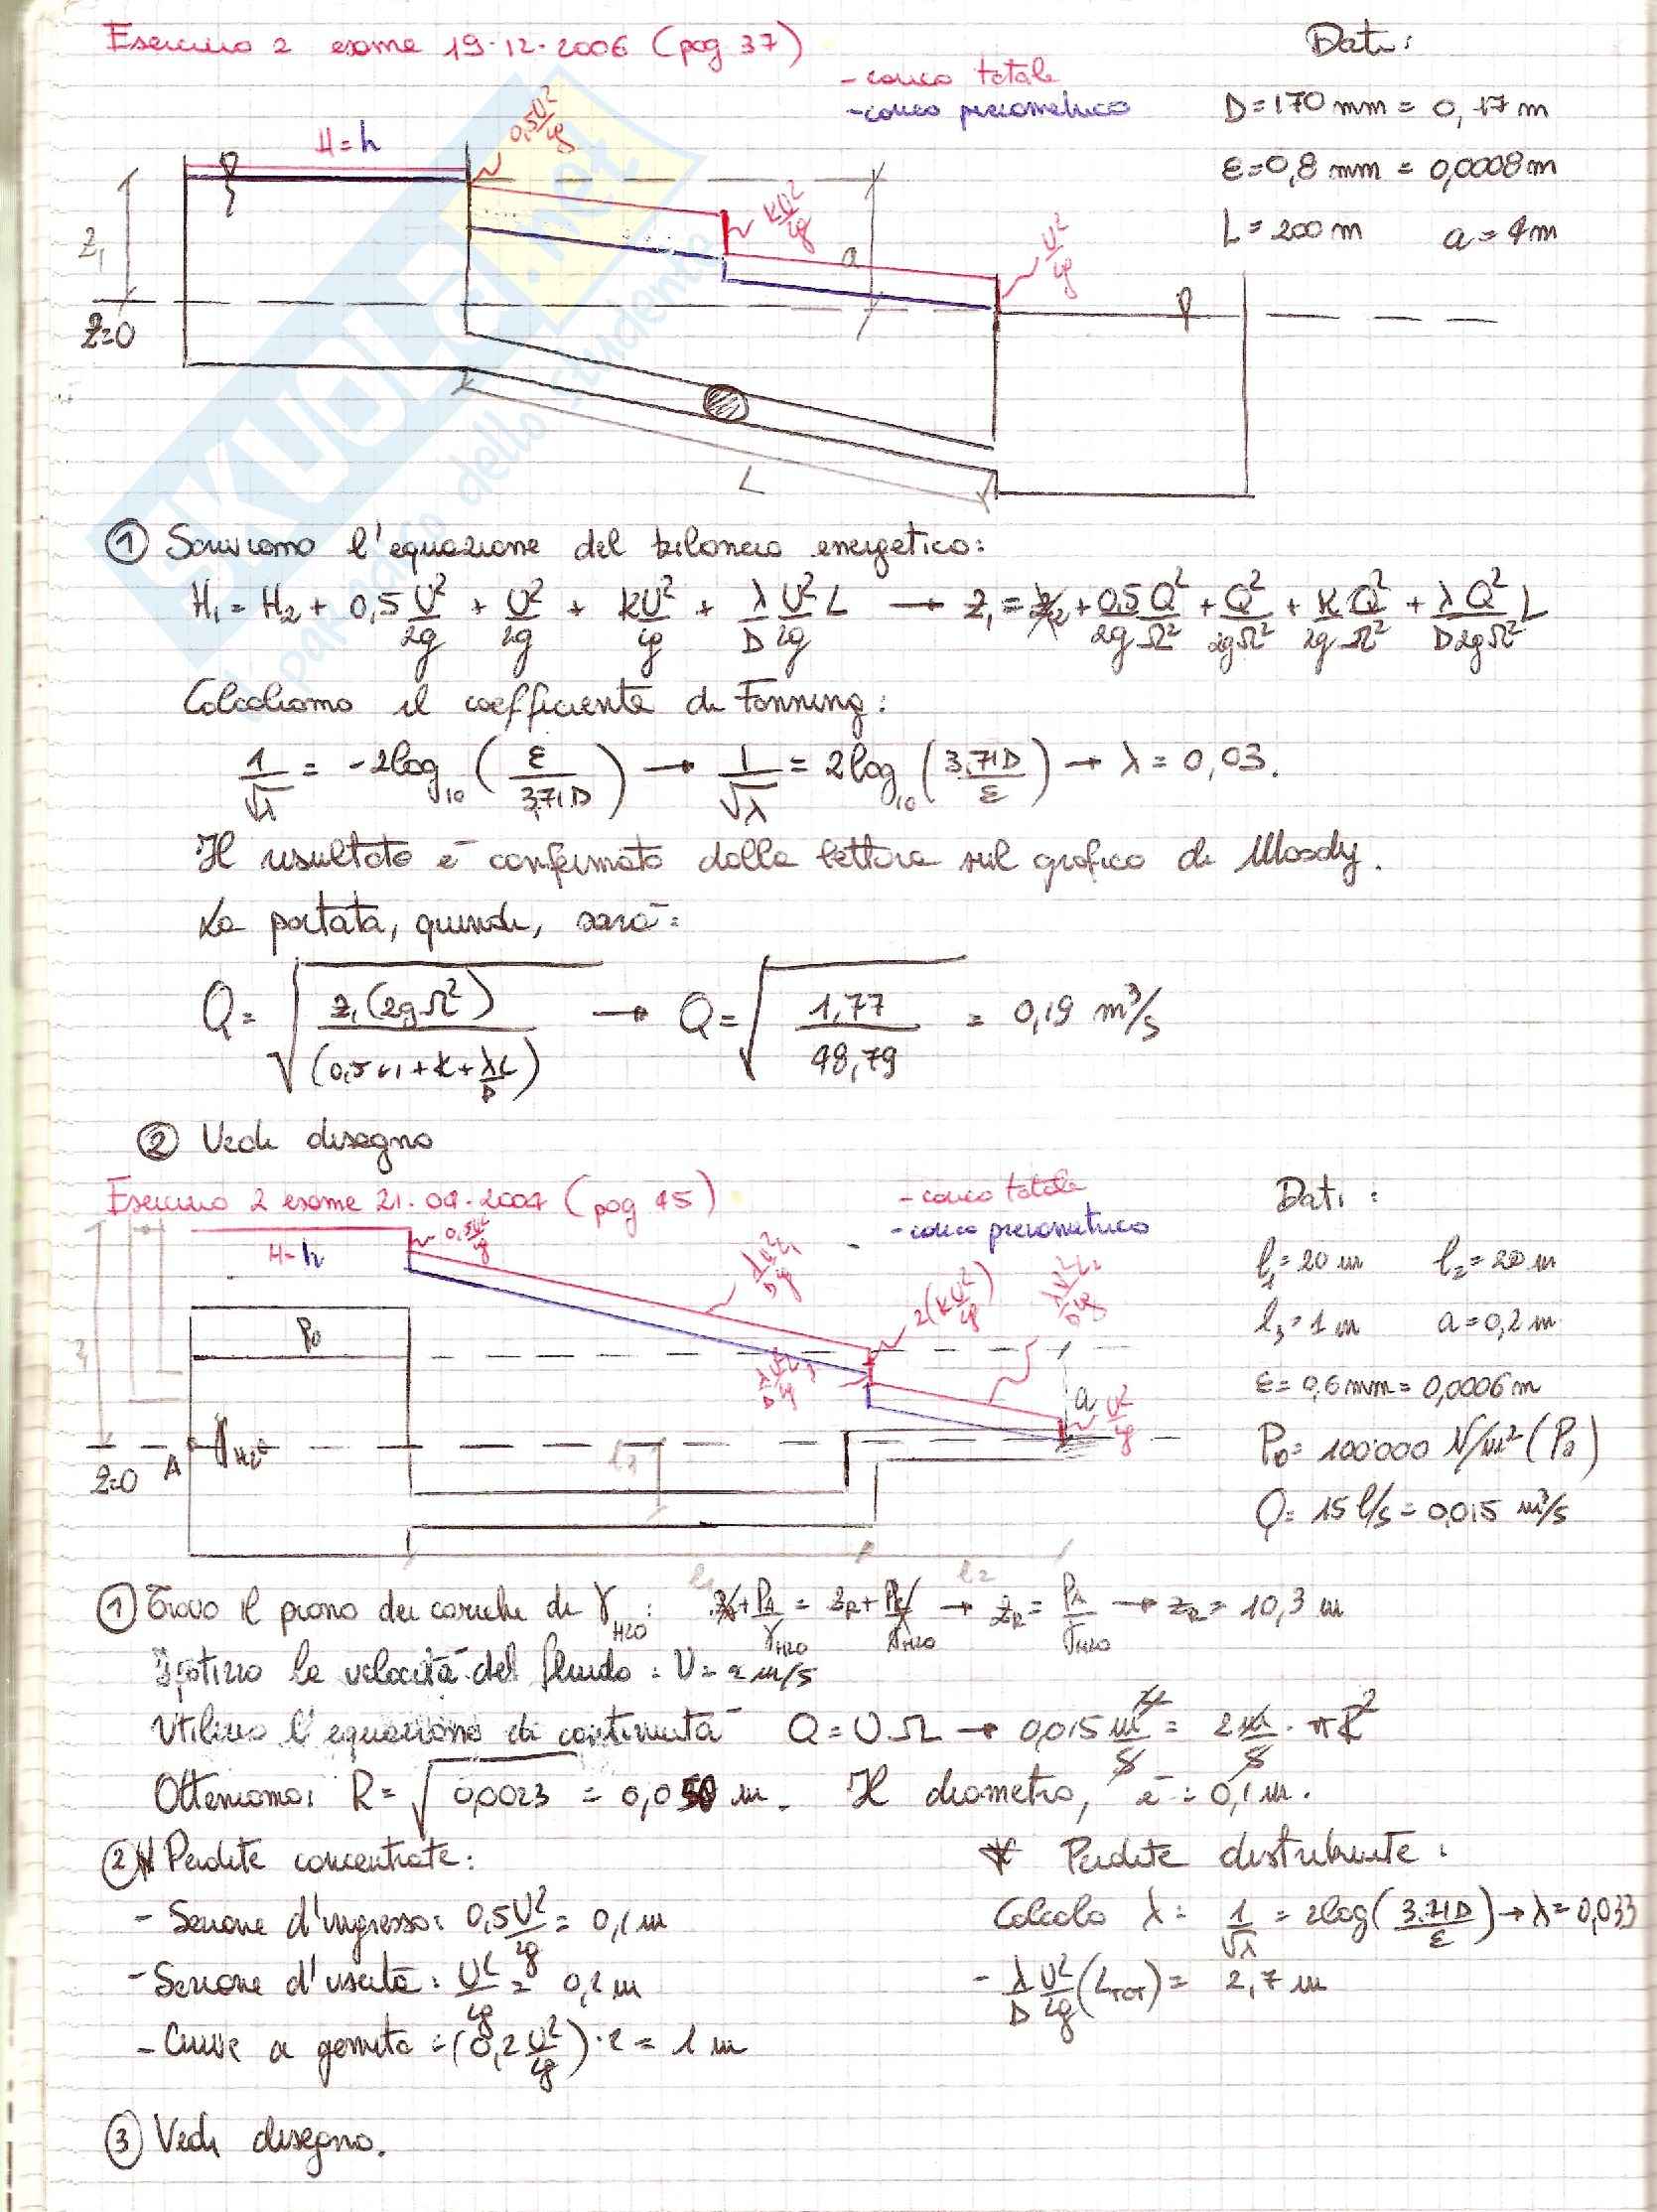 Esercizio 2 esame 19.12.2006 (pag 37)
- carico totale
- carico piezometrico
Dati:
D = 170 mm = 0,17 m
ε = 0,8 mm = 0,0008 m
L = 200 m a = 4 m
H = h
0,5 U²/2g
KU²/2g
U²/2g
a
Z₁
Z=0
L
SKUOLA.net
il paradiso dello studente
① Scriviamo l'equazione del bilancio energetico:
H₁ = H₂ + 0,5 U²/2g + U²/2g + KU²/2g + λ/D U²/2g L → Z₁ = Z₂ + 0,5 Q²/2gΩ² + Q²/2gΩ² + K Q²/2gΩ² + λQ²/D2gΩ² L
Calcoliamo il coefficiente di Fanning:
1/√λ = -2log₁₀ (ε/3,71D) → 1/√λ = 2log₁₀ (3,71D/ε) → λ = 0,03.
Il risultato è confermato dalla lettura sul grafico di Moody.
La portata, quindi, sarà:
Q = √(Z₁(2gΩ²)/(0,5+1+K+λL/D)) → Q = √(1,77/48,79) = 0,19 m³/s
② Vedi disegno
Esercizio 2 esame 21.04.2007 (pag 45)
- carico totale
- carico piezometrico
Dati:
l₁ = 20 m l₂ = 20 m
l₃ = 1 m a = 0,2 m
ε = 0,6 mm = 0,0006 m
P₀ = 100'000 N/m² (Pa)
Q = 15 l/s = 0,015 m³/s
H=h
0,5U²/2g
2(KU²/2g)
U²/2g
P₀
a
Z=0
A
γH₂O
l₃
l₁
l₂
① Trovo il piano dei carichi di γH₂O: Z_A + P_A/γH₂O = Z_R + P_R/γH₂O → Z_R = P_A/γH₂O → Z_R = 10,3 m
Ipotizzo la velocità del fluido: U = 2 m/s
Utilizzo l'equazione di continuità Q = UΩ → 0,015 m³/s = 2 m/s · πR²
Otteniamo: R = √0,0023 = 0,050 m. Il diametro, è: 0,1 m.
② * Perdite concentrate:
- Sezione d'ingresso: 0,5U²/2g = 0,1 m
- Sezione d'uscita: U²/2g = 0,2 m
- Curve a gomito: (0,2 U²/2g)·2 = 1 m
* Perdite distribuite:
Calcolo λ: 1/√λ = 2log(3,71D/ε) → λ = 0,033
- λ/D U²/2g (L_TOT) = 2,7 m
③ Vedi disegno.